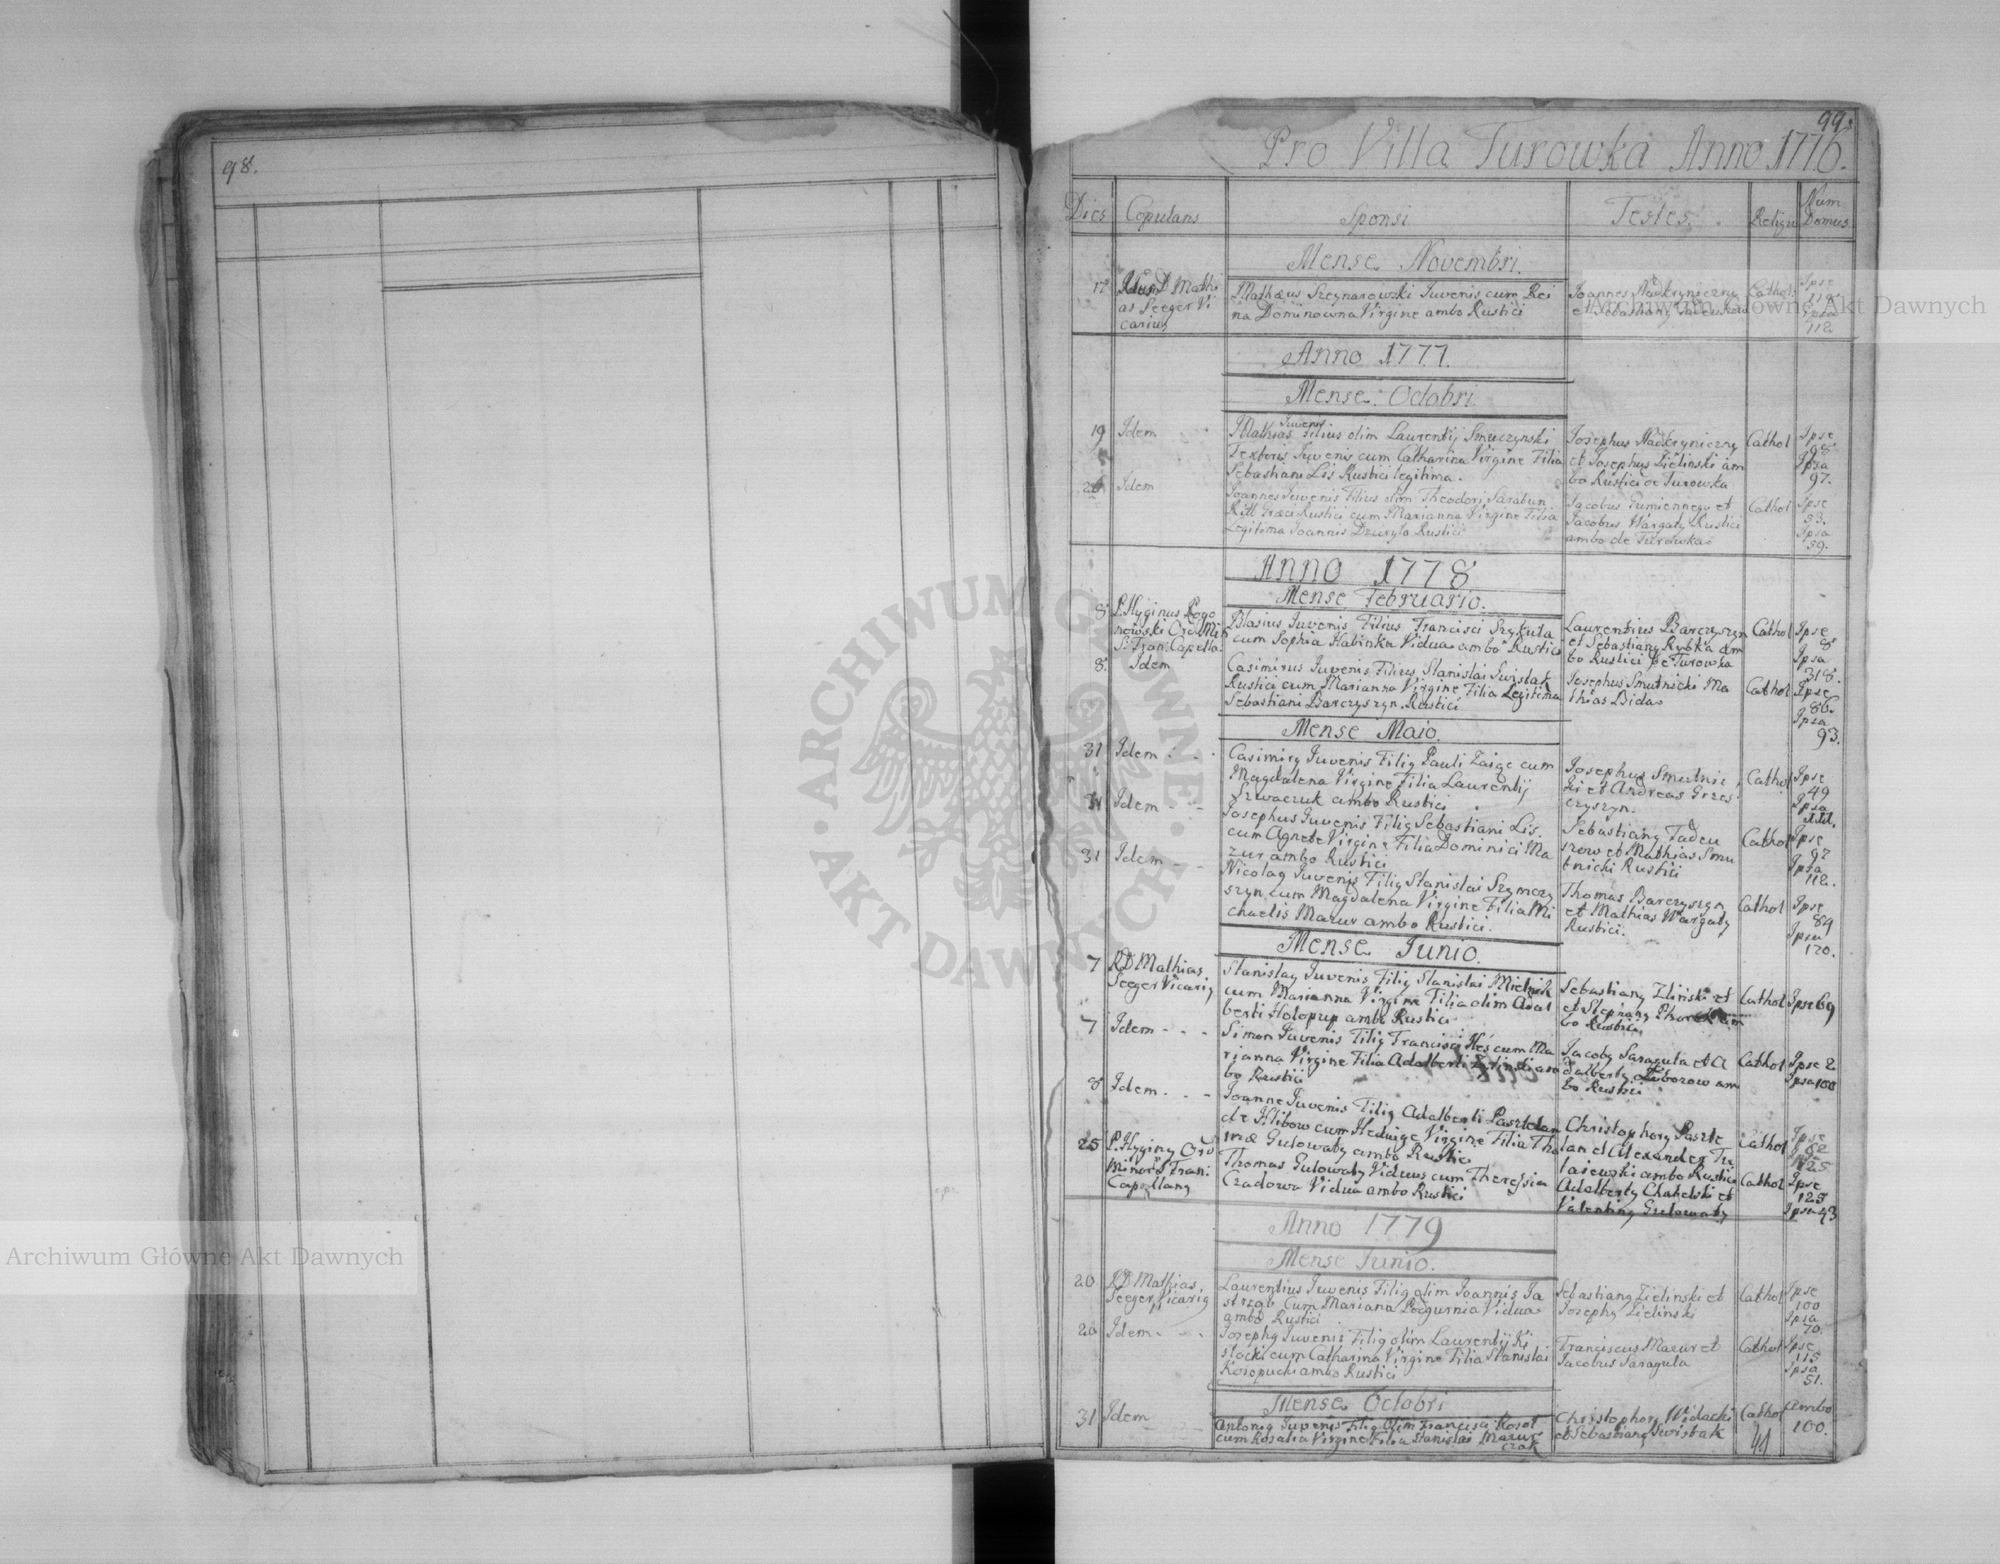 98.
99.
Pro Villa Turowka Anno 1776.
Dies Copulans Sponsi Testes. Religi Num Domus
Mense Novembri.
17 D Mathi
as Seeger Vi
carius
Mathæus Szeynarowski Iuvenis cum Re
na Dominowna Virgine ambo Rustici
Joannes
et Sebastiang
Cathol
Ipse
Ipsa
112
Anno 1777.
Mense Octobri
19 Idem
Iuvenis
Mathias Filius olim Laurentij Smuczynski
Textoris Iuvenis cum Catharina Virgine Filia
Sebastiani Lis Rustici legitima.
Josephus Nadkryniczny
et Josephus Zielinski am
bo Rustici de Turowka
Cathol
Ipse
98
Ipsa
97.
26 Idem
Joannes Juvenis Filius olim Theodori Sarabun
Ritt Græci Rustici cum Marianna Virgine Filia
Legitima Joannis Dzuryło Rustici
Jacobus Gumiennego et
Jacobus Wargaty Rustici
ambo de Turowka
Cathol
Ipse
53.
Ipsa
59.
Anno 1778
Mense Februario.
8 P. Hyginus Rogo
nowski Ord Min
S. Fran: Capella.
Blasius Iuvenis Filius Francisci Szykuta
cum Sophia Habinka Vidua ambo Rustici
Laurentius Barczyszyn
et Sebastiang Rybka am
bo Rustici de Turowka
Cathol
Ipse
8
Ipsa
318.
8. Idem
Casimirus Iuvenis Filius Stanislai Swistak
Rustici cum Marianna Virgine Filia Legitima
Sebastiani Barczyszyn Rustici
Josephus Smutnicki Ma
thias Bida
Cathol
Ipse
86.
Ipsa
93.
Mense Maio.
31 Idem
Casimirg Juvenis Filig Pauli Zaigc cum
Magdalena Virgine Filia Laurentij
Szwaczuk ambo Rustici
Josephus Smutnic
ki et Andreas Grzes
czyszyn.
Cathol
Ipse
49
Ipsa
31 Idem
Josephus Iuvenis Filig Sebastiani Lis.
cum Agnete Virgine Filia Dominici Ma
zur ambo Rustici
Sebastiang Tadeu
szow et Mathias Smu
tnicki Rustici
Cathol
Ipse
97
Ipsa
112.
31 Idem
Nicolag Juvenis Filig Stanislai Szymczy
szyn cum Magdalena Virgine Filia Mi
chaelis Mazur ambo Rustici.
Thomas Barczyszyn
et Mathias Wargaty
Rustici.
Cathol
Ipse
84
Ipsa
120.
Mense Junio.
7 RD Mathias
Seeger Vicarig
Stanislag Juvenis Filig Stanislai Mielnik
cum Marianna Virgine Filia olim Adal
berti Holopup ambo Rustici
Sebastiang Zlinski et
et Stephang am
bo Rustici
Cathol
Ipse 69
7 Idem
Simon Juvenis Filig Francisci Kes cum Ma
rianna Virgine Filia Adalberti Zielinski am
bo Rustici
Jacobg Saragula et A
dalbertg Liborow am
bo Rustici
Cathol
Ipse 2
Ipsa 100
8 Idem
Joanne Juvenis Filig Adalberti Pasztelan
de Klibow cum Hedwige Virgine Filia Tho
mæ Gulowaty ambo Rustici
Christophorg Paszte
lan et Alexander Tu
laiewski ambo Rustici
Cathol
Ipse
62
125
25 P. Hyging Ord
Minor S Fran:
Capellang
Thomas Gulowaty Viduus cum Theressia
Czadowa Vidua ambo Rustici
Adalbertg Chahelski et
Valenting Gulowaty
Cathol
Ipse
125
Ipsa 43
Anno 1779
Mense Junio.
20 RD Mathias
Seeger Vicarig
Laurentius Iuvenis Filig olim Joannis Ja
strząb Cum Mariana Podgurnia Vidua
ambo Rustici
Sebastiang Zielinski et
Josephg Zielinski
Cathol
Ipse
100
Ipsa
70.
20 Idem
Josephg Juvenis Filig olim Laurentij Ki
slocki cum Catharina Virgine Filia Stanislai
Kosopucki ambo Rustici
Franciscus Mazur et
Jacobus Saragula
Cathol
Ipse
115
Ipsa
51.
Mense Octobri
31 Idem
Antonig Juvenis Filig Olim Francisci Kosot
cum Rosalia Virgine Filia Stanislai Mazur
czak
Christophorg Widacki
et Sebastiang Swistak
Cathol
Ambo
100.
Archiwum Główne Akt Dawnych
Archiwum Główne Akt Dawnych
ARCHIWUM GŁÓWNE
AKT DAWNYCH